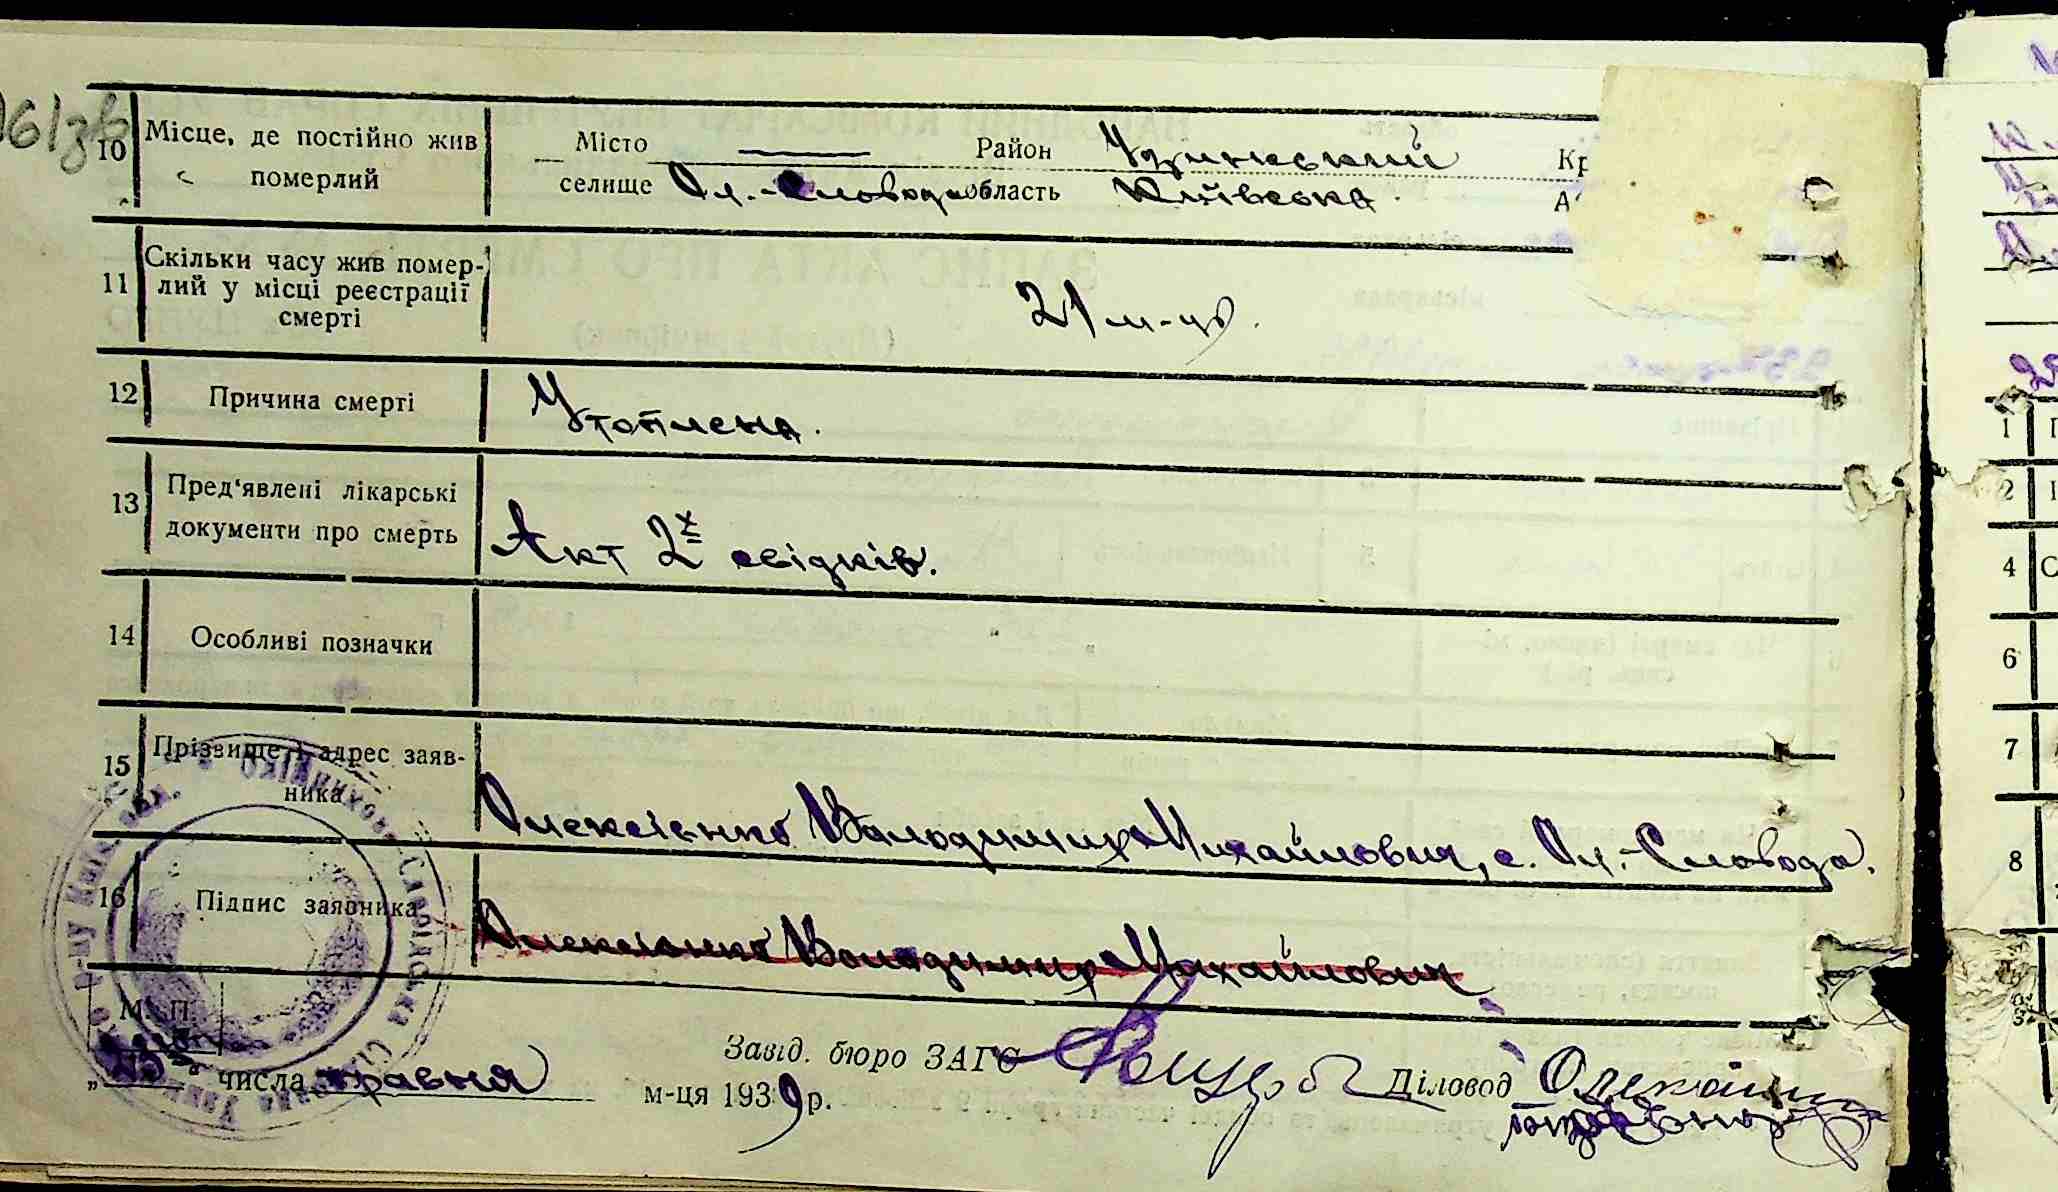 10
Місце, де постійно жив
померлий
Місто — Район Узинський
селище Ол.-Слобода область Київська
11
Скільки часу жив помер-
лий у місці реєстрації
смерті
21 м-ць.
12
Причина смерті
Утоплена.
13
Пред'явлені лікарські
документи про смерть
Акт 2х свідків.
14
Особливі позначки
15
Прізвище і адрес заяв-
ника
Олексієнко Володимир Михайлович, с. Ол.-Слобода.
16
Підпис заявника
Олексієнко Володимир Михайлович
М. П.
числа травня м-ця 1939 р.
Завід. бюро ЗАГС
Діловод
1
2
4
6
7
8